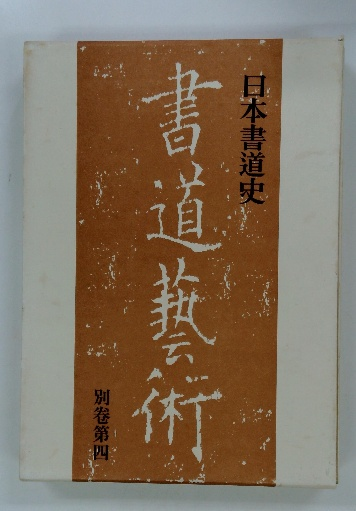 日本書道史
書道藝術
別卷第四